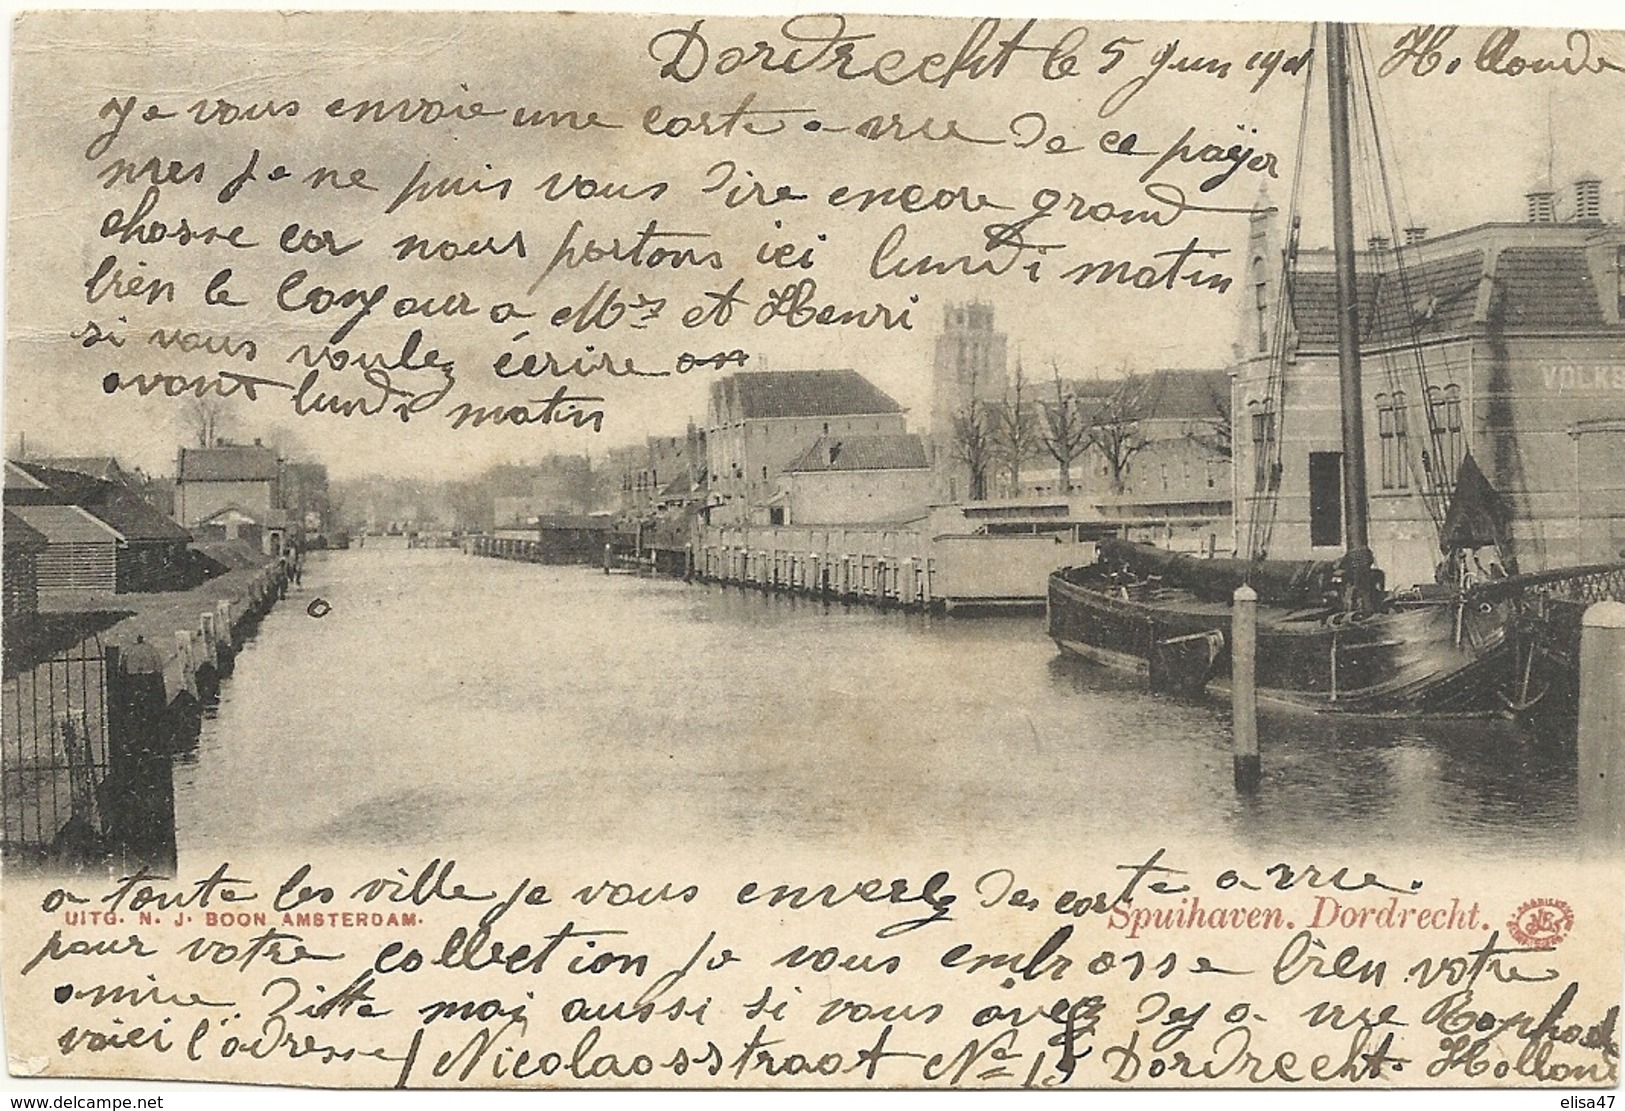 Dordrecht le 5 Jun 1901 Hollande
Je vous envoie une carte a vue de ce païyer
mes je ne puis vous dire encore grand
chosse car nous partons ici lundi matin
bien le bonjour a Mr et Henri
si vous voulez écrire
avant lundi matin
VOLKS
a toute les ville je vous enverez des carte a vue.
UITG. N. J. BOON AMSTERDAM.
Spuihaven. Dordrecht.
pour votre collection je vous embrasse bien votre
amie. ditte moi aussi si vous avez deja vue Raphael
voici l'adresse / Nicolaasstraat No 15 Dordrecht. Holland
delcampe.net
elisa47